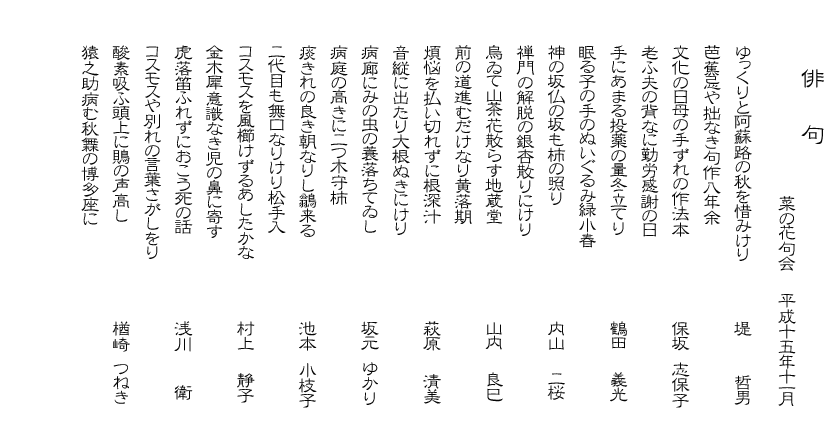 俳句
菜の花句会 平成十五年十一月
ゆっくりと阿蘇路の秋を惜みけり 堤 哲男
芭蕉忌や拙なき句作八年余
文化の日母の手ずれの作法本 保坂 志保子
老ふ夫の背なに勤労感謝の日
手にあまる投薬の量冬立てり 鶴田 義光
眠る子の手のぬいぐるみ緑小春
神の坂仏の坂も柿の照り 内山 二桜
禅門の解脱の銀杏散りにけり
烏ゐて山茶花散らす地蔵堂 山内 良巳
前の道進むだけなり黄落期
煩悩を払い切れずに根深汁 萩原 清美
音縦に出たり大根ぬきにけり
病廊にみの虫の蓑落ちてゐし 坂元 ゆかり
病庭の高きに二つ木守柿
痰きれの良き朝なりし鶲来る 池本 小枝子
二代目も無口なりけり松手入
コスモスを風櫛けずるあしたかな 村上 静子
金木犀意識なき児の鼻に寄す
虎落笛ふれずにおこう死の話 浅川 衛
コスモスや別れの言葉さがしをり
酸素吸ふ頭上に鵙の声高し 楢崎 つねき
猿之助病む秋舞の博多座に